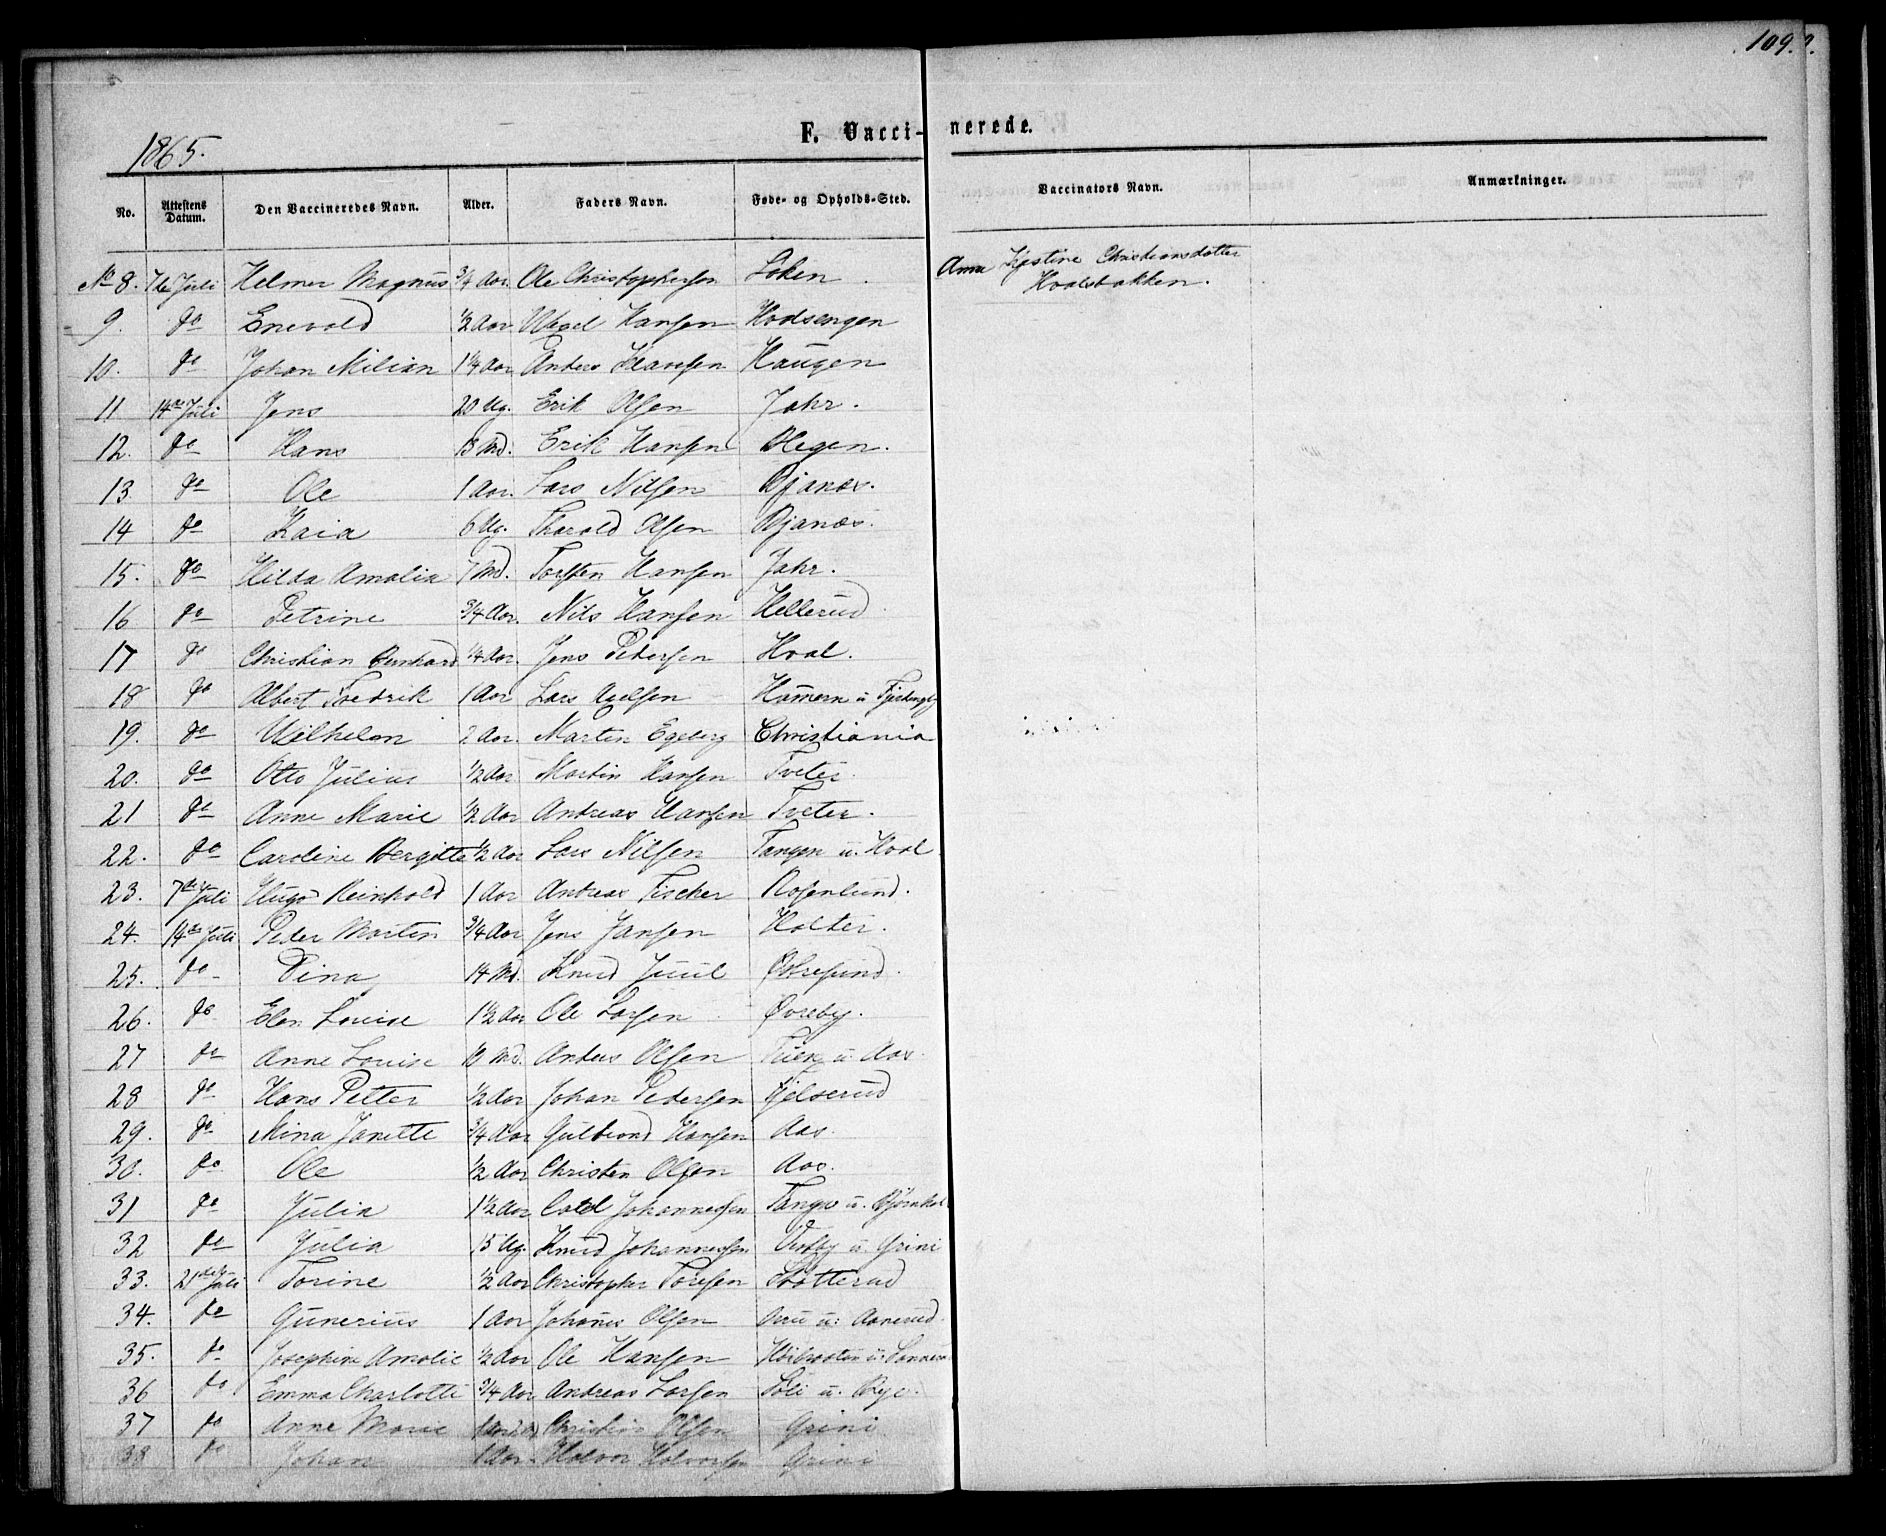 109.
1865.
F. Vaccinerede.
No. Attestens Datum. Den Vaccineredes Navn. Alder. Faders Navn. Føde- og Opholds-Sted. Vaccinators Navn. Anmærkninger.
No 8. 7de Juli Helmer Magnus 3/4 Aar Ole Christophersen Løken. Anne Kjestine Christiansdatter
Hvalsbakken.
9. do Enevold 1/2 Aar Hansen Hodsengen
10. do Johan Milian 1 1/4 Aar Anders Haugen
11 14de Juli Jens 20 Ug. Erik Olsen Jahr.
12. do Hans 13 Md. Erik Hansen
13 do Ole 1 Aar. Lars Nilsen Bjanæs.
14 do Kaia 6 Ug. Tharald Olsen Bjanæs.
15. do Hilda Amalia 7 Md. Torsten Hansen Jahr.
16 do Petrine 3/4 Aar. Nils Hansen Hellerud
17 do Christian Bernhard 1/4 Aar. Jens Pedersen Hval.
18 do Albert Fredrik 1 Aar Lars Axelsen Hamern u Fjerdingby
19. do Wilhelm 2 Aar. Martin Egeberg Christiania
20. do Otto Julius 1/2 Aar Martin Hansen Tveter.
21 do Anne Marie 1/2 Aar Andreas Hansen Tveter.
22. do Caroline Bergitte 1/2 Aar Lars Nilsen Tangen u. Hval.
23. 7de Juli Hugo Reinhold 1 Aar Andreas Fischer Rosenlund.
24. 14de Juli Peder Martin 3/4 Aar Jens Jansen Holter.
25. do Pina 14 Md. Knud Juul
26. do Elen Louise 1 1/2 Aar Ole Larsen Øvreby.
27 do Anne Louise Md. Anders Olsen u Aas.
28 do Hans Petter 1/2 Aar Johan Pedersen Kjelserud
29. do Mina Janette 3/4 Aar Gulbrand Hansen Aas.
30. do Ole 1/2 Aar Christen Olsen Aas.
31 do Julia 1 1/2 Aar Johannessen Tangen u.
32 do Julia 15 Ug. Knud Johannessen Vestby u. Grini
33. 21de Juli Torine 1/2 Aar Christopher Toresen
34. do Gunerius 1 Aar Johanes Olsen u: Aanerud.
35. do Josephine Amalie 1/2 Aar Ole Hansen Høibraaten u:
36 do Emma Charlotte 3/4 Aar Andreas Larsen u. Bye.
37 do Anne Marie 1 Aar Christian Olsen Grini
38 do Johan 1 Aar. Halvor Halvorsen Grini